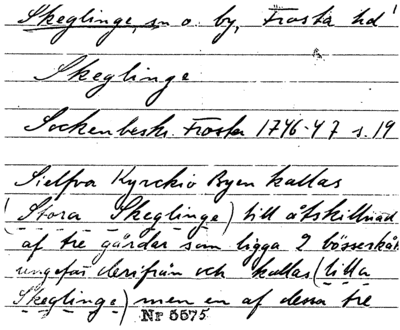 Skeglinge, sn o. by, Frosta hd
Skeglinge
Sockenbeskr. Frosta 1746-47 s. 19
Sielfva Kyrckio Byen kallas
(Stora Skeglinge) till åtskillnad
af tre gårdar som ligga 2 bösseskåt
ungefär derifrån och kallas (lilla
Skeglinge) men en af dessa tre
Nr 5575